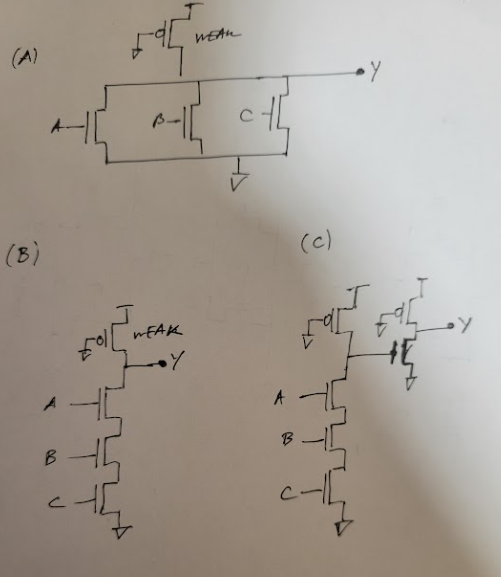 (A)
WEAK
Y
A
B
C
(B)
WEAK
Y
A
B
C
(C)
Y
A
B
C